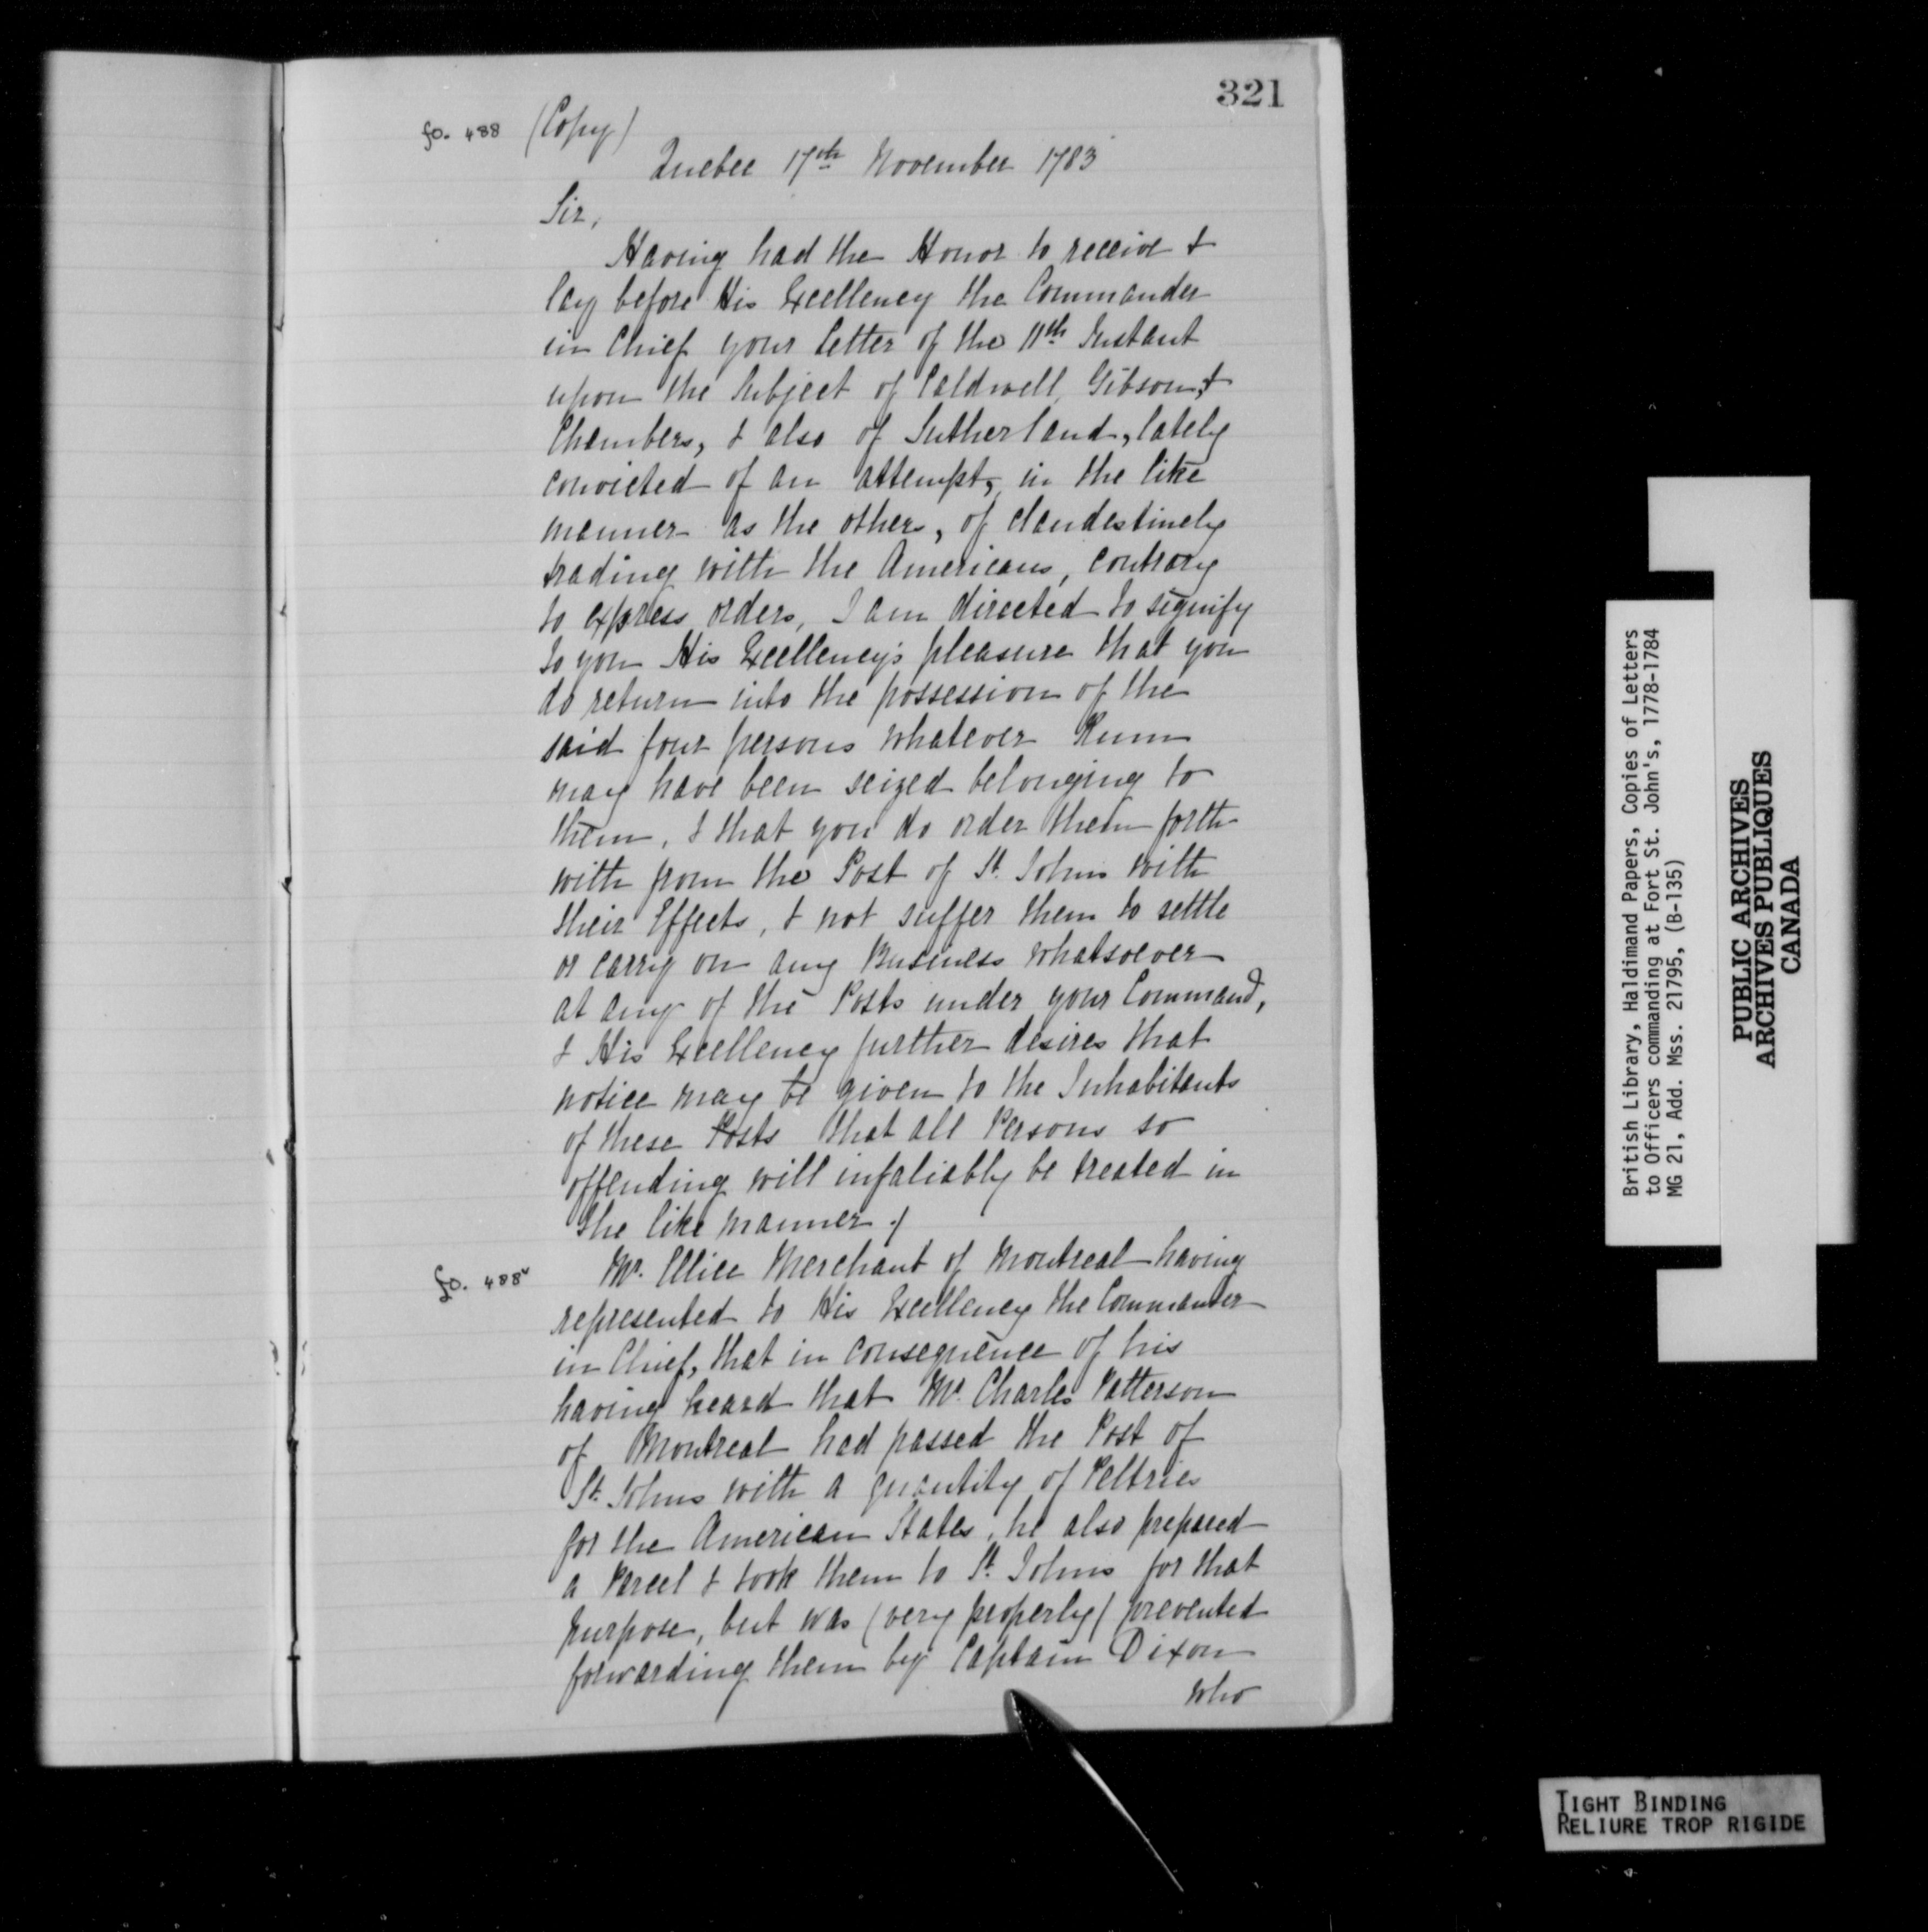 321
fo. 488 (Copy)
Quebec 17th November 1783
Sir,
Having had the Honor to receive &
lay before His Excellency the Commander
in Chief your letter of the 11th Instant
upon the Subject of Caldwell, Gibson, &
Chambers, & also of Sutherland, lately
convicted of an attempt, in the like
manner as the others, of clandestinely
trading with the Americans, contrary
to express orders, I am directed to signify
to you His Excellency's pleasure that you
do return into the possession of the
said four persons whatever Rum
may have been seized belonging to
them, & that you do order them forth
with from the Post of St. Johns with
their Effects, & not suffer them to settle
or carry on any Business whatsoever
at any of the Posts under your Command,
& His Excellency further desires that
notice may be given to the Inhabitants
of these Posts that all Persons so
offending will infaliably be treated in
the like manner ./
fo. 488v Mr. Ellice Merchant of Montreal having
represented to His Excellency the Commander
in Chief, that in consequence of his
having heard that Mr. Charles Patterson
of Montreal had passed the Post of
St. Johns with a quantity of Peltries
for the American States, he also prepared
a Parcel & took them to St. Johns for that
purpose, but was (very properly) prevented
forwarding them by Captain Dixon
who
British Library, Haldimand Papers, Copies of Letters
to Officers commanding at Fort St. John's, 1778-1784
MG 21, Add. Mss. 21795, (B-135)
PUBLIC ARCHIVES
ARCHIVES PUBLIQUES
CANADA
TIGHT BINDING
RELIURE TROP RIGIDE